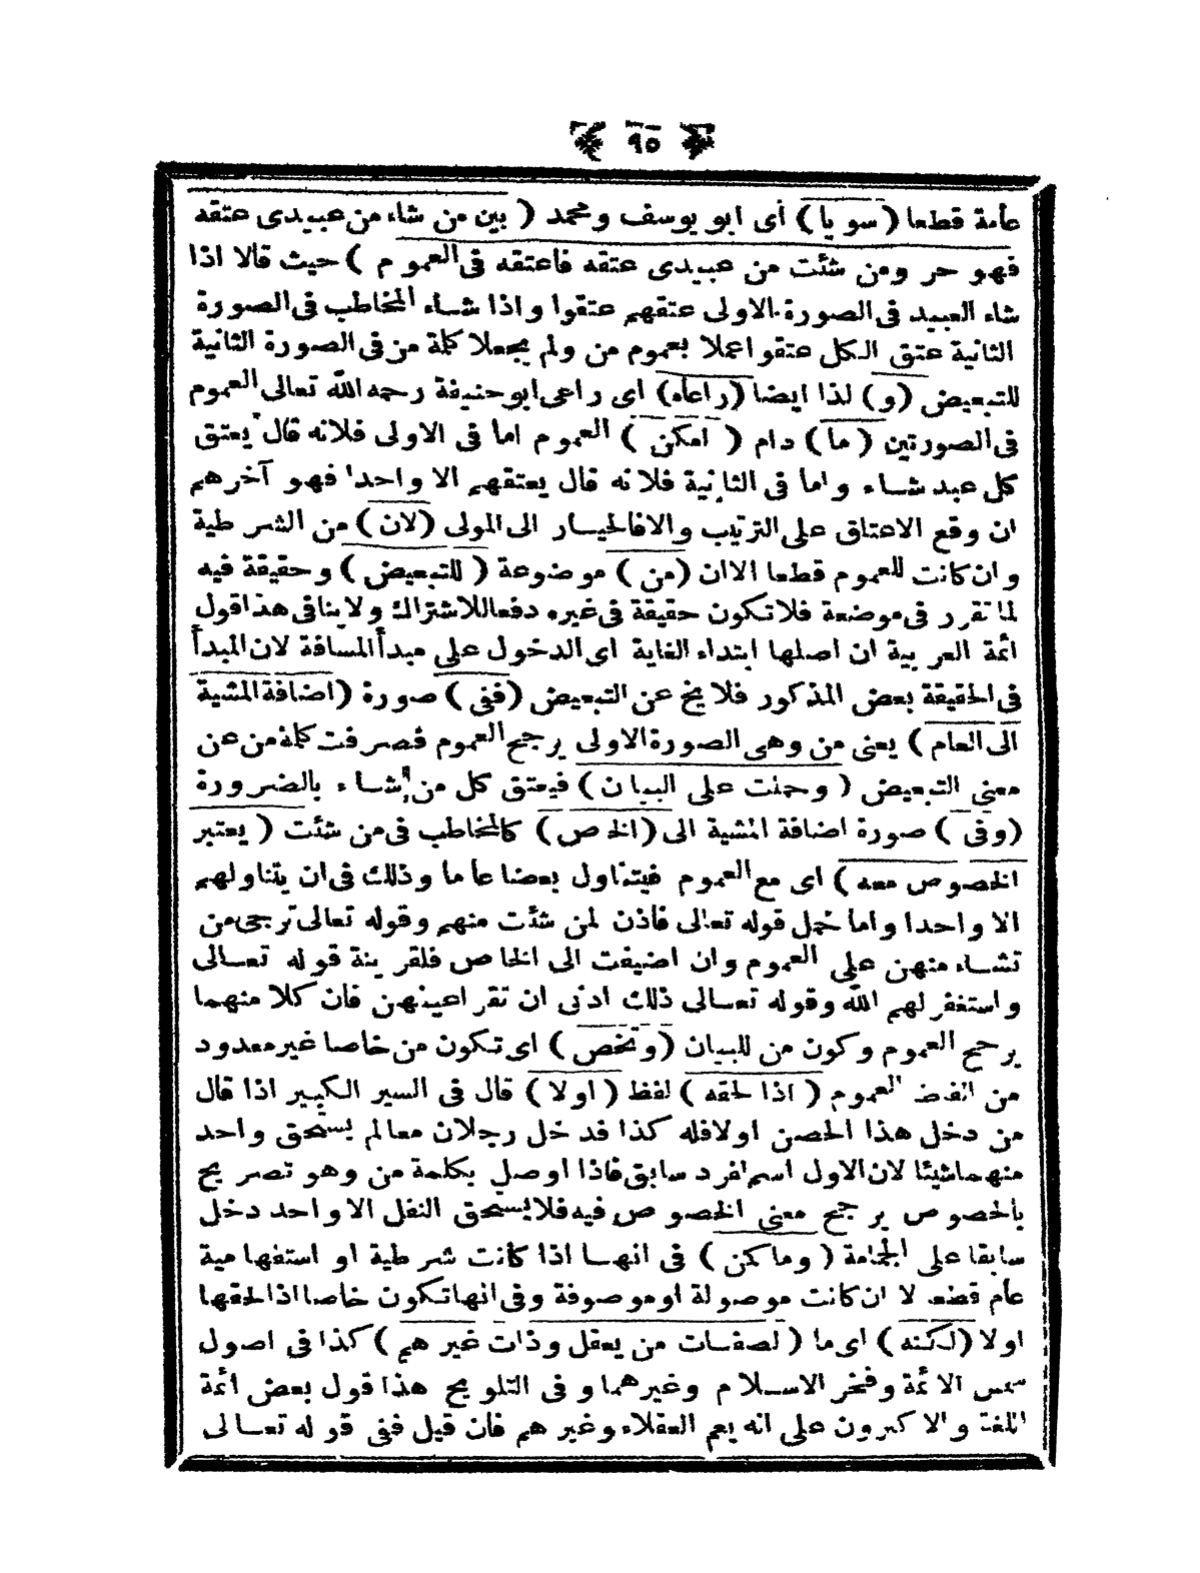 ٩٥
عامة قطعا (سويا) أى ابو يوسف ومحمد (بين من شاء من عبيدى عتقه
فهو حر ومن شئت من عبيدى عتقه فاعتقه فى العموم) حيث قالا اذا
شاء العبيد فى الصورة الاولى عتقهم عتقوا واذا شاء المخاطب فى الصورة
الثانية عتق الكل عتقوا اعملا بعموم من ولم يجعلا كلمة من فى الصورة الثانية
للتبعيض (و) لذا ايضا (راعاه) اى راعى ابوحنيفة رحمه الله تعالى العموم
فى الصورتين (ما) دام (امكن) العموم اما فى الاولى فلانه قال يعتق
كل عبد شاء واما فى الثانية فلانه قال يعتقهم الا واحدا فهو آخرهم
ان وقع الاعتاق على الترتيب والافالخيار الى المولى (لان) من الشرطية
وان كانت للعموم قطعا الاان (من) موضوعة (للتبعيض) وحقيقة فيه
لما تقرر فى موضعة فلا تكون حقيقة فى غيره دفعا للاشتراك ولا ينافى هذا قول
ائمة العربية ان اصلها ابتداء الغاية اى الدخول على مبدأ المسافة لان المبدأ
فى الحقيقة بعض المذكور فلا يخ عن التبعيض (ففى) صورة (اضافة المشية
الى العام) يعنى من وهى الصورة الاولى يرجح العموم فصرفت كلمة من عن
معنى التبعيض (وحملت على البيان) فيعتق كل من شاء بالضرورة
(وفى) صورة اضافة المشية الى (الخاص) كالمخاطب فى من شئت (يعتبر
الخصوص معه) اى مع العموم فيتناول بعضا عاما وذلك فى ان يتناولهم
الا واحدا واما حمل قوله تعالى فأذن لمن شئت منهم وقوله تعالى ترجى من
تشاء منهن على العموم وان اضيفت الى الخاص فلقرينة قوله تعالى
واستغفر لهم الله وقوله تعالى ذلك ادنى ان تقر اعينهن فان كلا منهما
يرجح العموم وكون من للبيان (وتخص) اى تكون من خاصا غير معدود
من الفاظ العموم (اذا لحقه) لفظ (اولا) قال فى السير الكبير اذا قال
من دخل هذا الحصن اولا فله كذا فدخل رجلان معالم يستحق واحد
منهما شيئا لان الاول اسم لفرد سابق فاذا اوصل بكلمة من وهو تصريح
بالخصوص يرجح معنى الخصوص فيه فلا يستحق النفل الا واحد دخل
سابقا على الجماعة (وما كمن) فى انها اذا كانت شرطية او استفهامية
عام قطعا لا ان كانت موصولة او موصوفة وفى انها تكون خاصا اذا لحقها
اولا (لكنه) اى ما (لصفات من يعقل وذات غيرهم) كذا فى اصول
شمس الائمة وفخر الاسلام وغيرهما وفى التلويح هذا قول بعض ائمة
اللغة والاكثرون على انه يعم العقلاء وغيرهم فان قيل ففى قوله تعالى